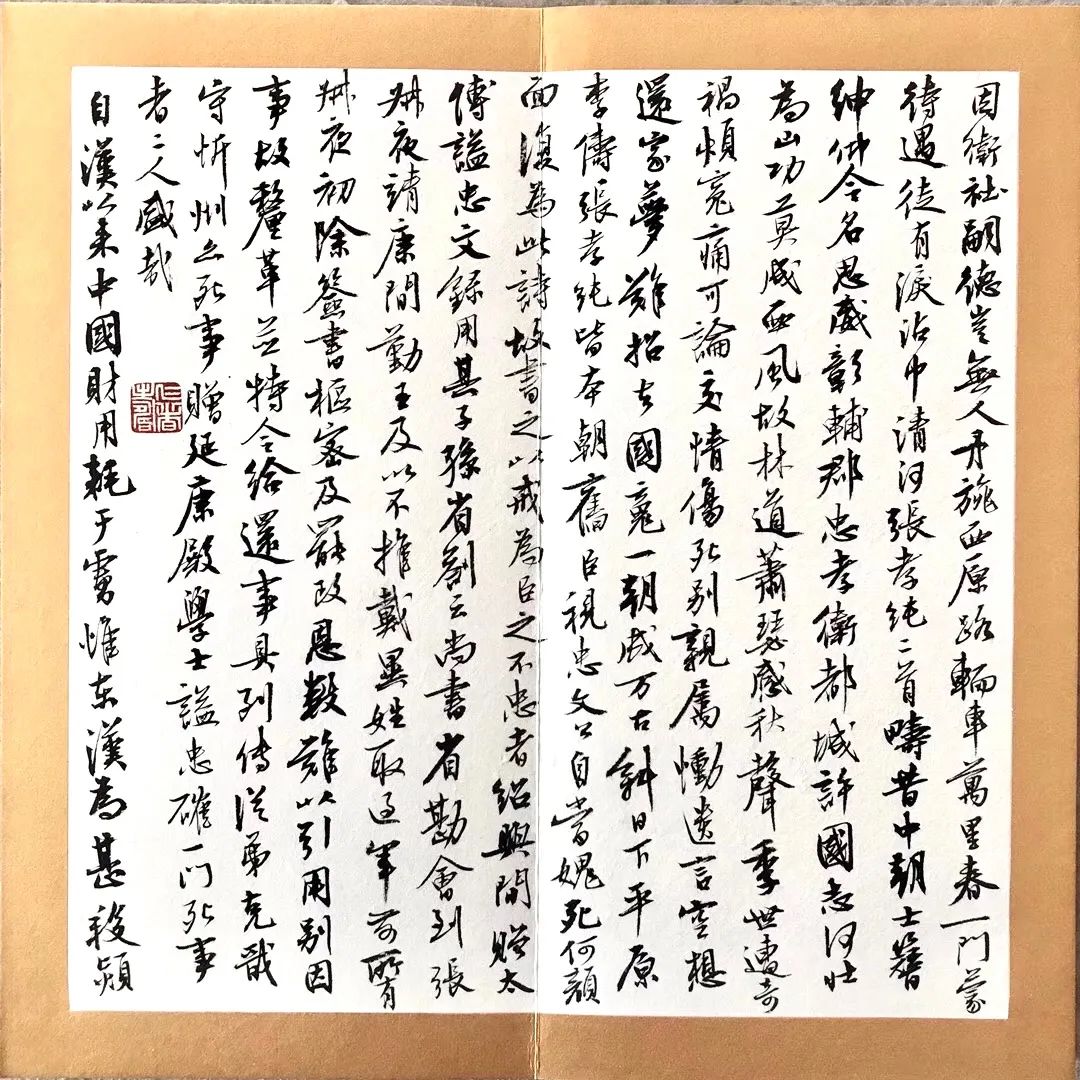 因衛社嗣德豈無人丹旐西原路輀車萬里春一門蒙
待遇徒有淚沾巾清河張孝純二首疇昔中朝士簪
紳仰令名恩威彰輔郡忠孝衛都城許國志何壯
為山功莫成西風故林道蕭瑟感秋聲季世遭奇
禍煩冤痛可論交情傷死别親屬慟遺言空想
還家夢難招去國䰟一朝成万古斜日下平原
李儔張孝純皆本朝舊臣視忠文公自當愧死何顏
面復為此詩故書之以戒為臣之不忠者紹興間贈太
傅謚忠文錄用其子孫省劄云尚書省勘會到張
叔夜靖康間勤王及以不推戴異姓取過軍前所有
叔夜初除簽書樞密及罷政恩數難以引用别因
事故釐革並特令給還事具列傳從弟克戩
守忻州亦死事贈延康殿學士謚忠確一門死事
者二人盛哉
自漢以来中國財用耗于虜惟東漢為甚段熲